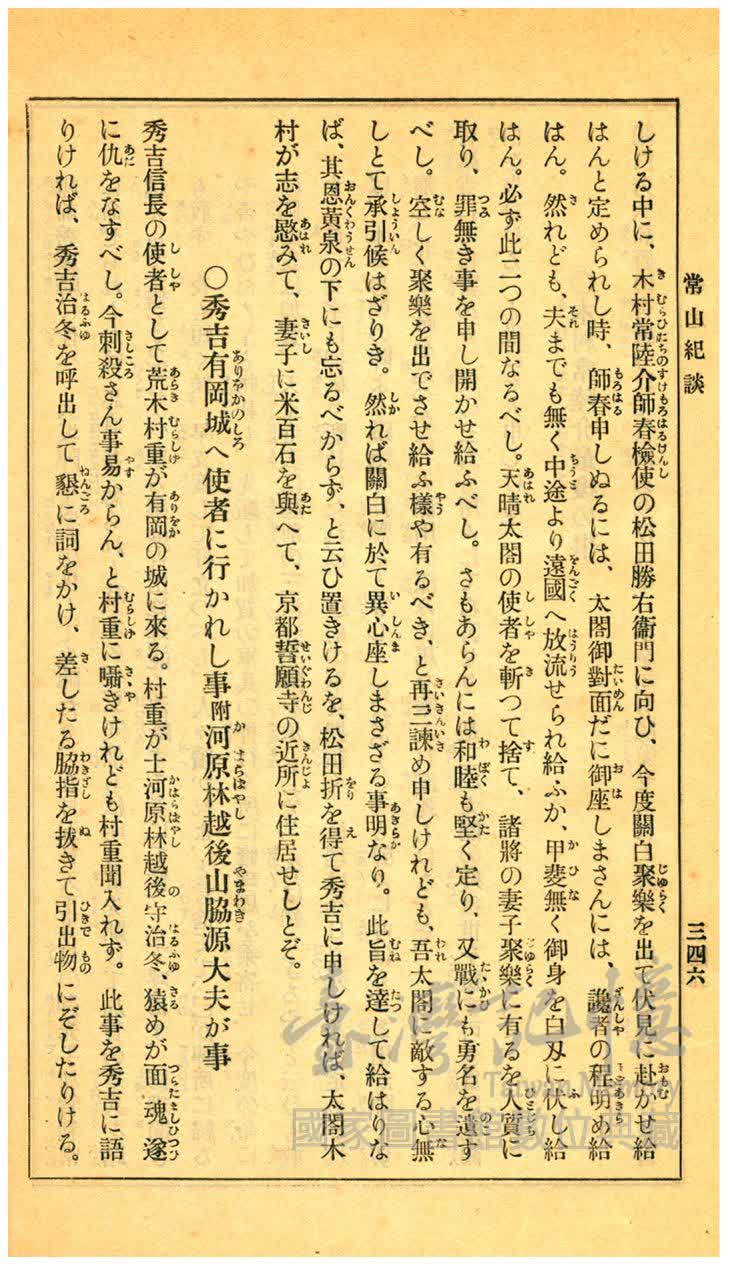 常山紀談
三四六
しける中に、木村常陸介師春檢使の松田勝右衞門に向ひ、今度關白聚樂を出て伏見に赴かせ給
はんと定められし時、師春申しぬるには、太閤御對面だに御座しまさんには、讒者の程明め給
はん。然れども、夫までも無く中途より遠國へ放流せられ給ふか、甲斐無く御身を白刄に伏し給
はん。必ず此二つの間なるべし。天晴太閤の使者を斬つて捨て、諸將の妻子聚樂に有るを人質に
取り、罪無き事を申し開かせ給ふべし。さもあらんには和睦も堅く定り、又戰にも勇名を遺す
べし。空しく聚樂を出でさせ給ふ樣や有るべき、と再三諫め申しけれども、吾太閤に敵する心無
しとて承引候はざりき。然れば關白に於て異心座しまさざる事明なり。此旨を達して給はりな
ば、其恩黃泉の下にも忘るべからず、と云ひ置きけるを、松田折を得て秀吉に申しければ、太閤木
村が志を愍みて、妻子に米百石を與へて、京都誓願寺の近所に住居せしとぞ。
〇秀吉有岡城へ使者に行かれし事附河原林越後山脇源大夫が事
秀吉信長の使者として荒木村重が有岡の城に來る。村重が士河原林越後守治冬、猿めが面魂遂
に仇をなすべし。今刺殺さん事易からん、と村重に囁きけれども村重聞入れず。此事を秀吉に語
りければ、秀吉治冬を呼出して懇に詞をかけ、差したる脇指を拔きて引出物にぞしたりける。
臺灣記憶
Taiwan Memory
國家圖書館數位典藏